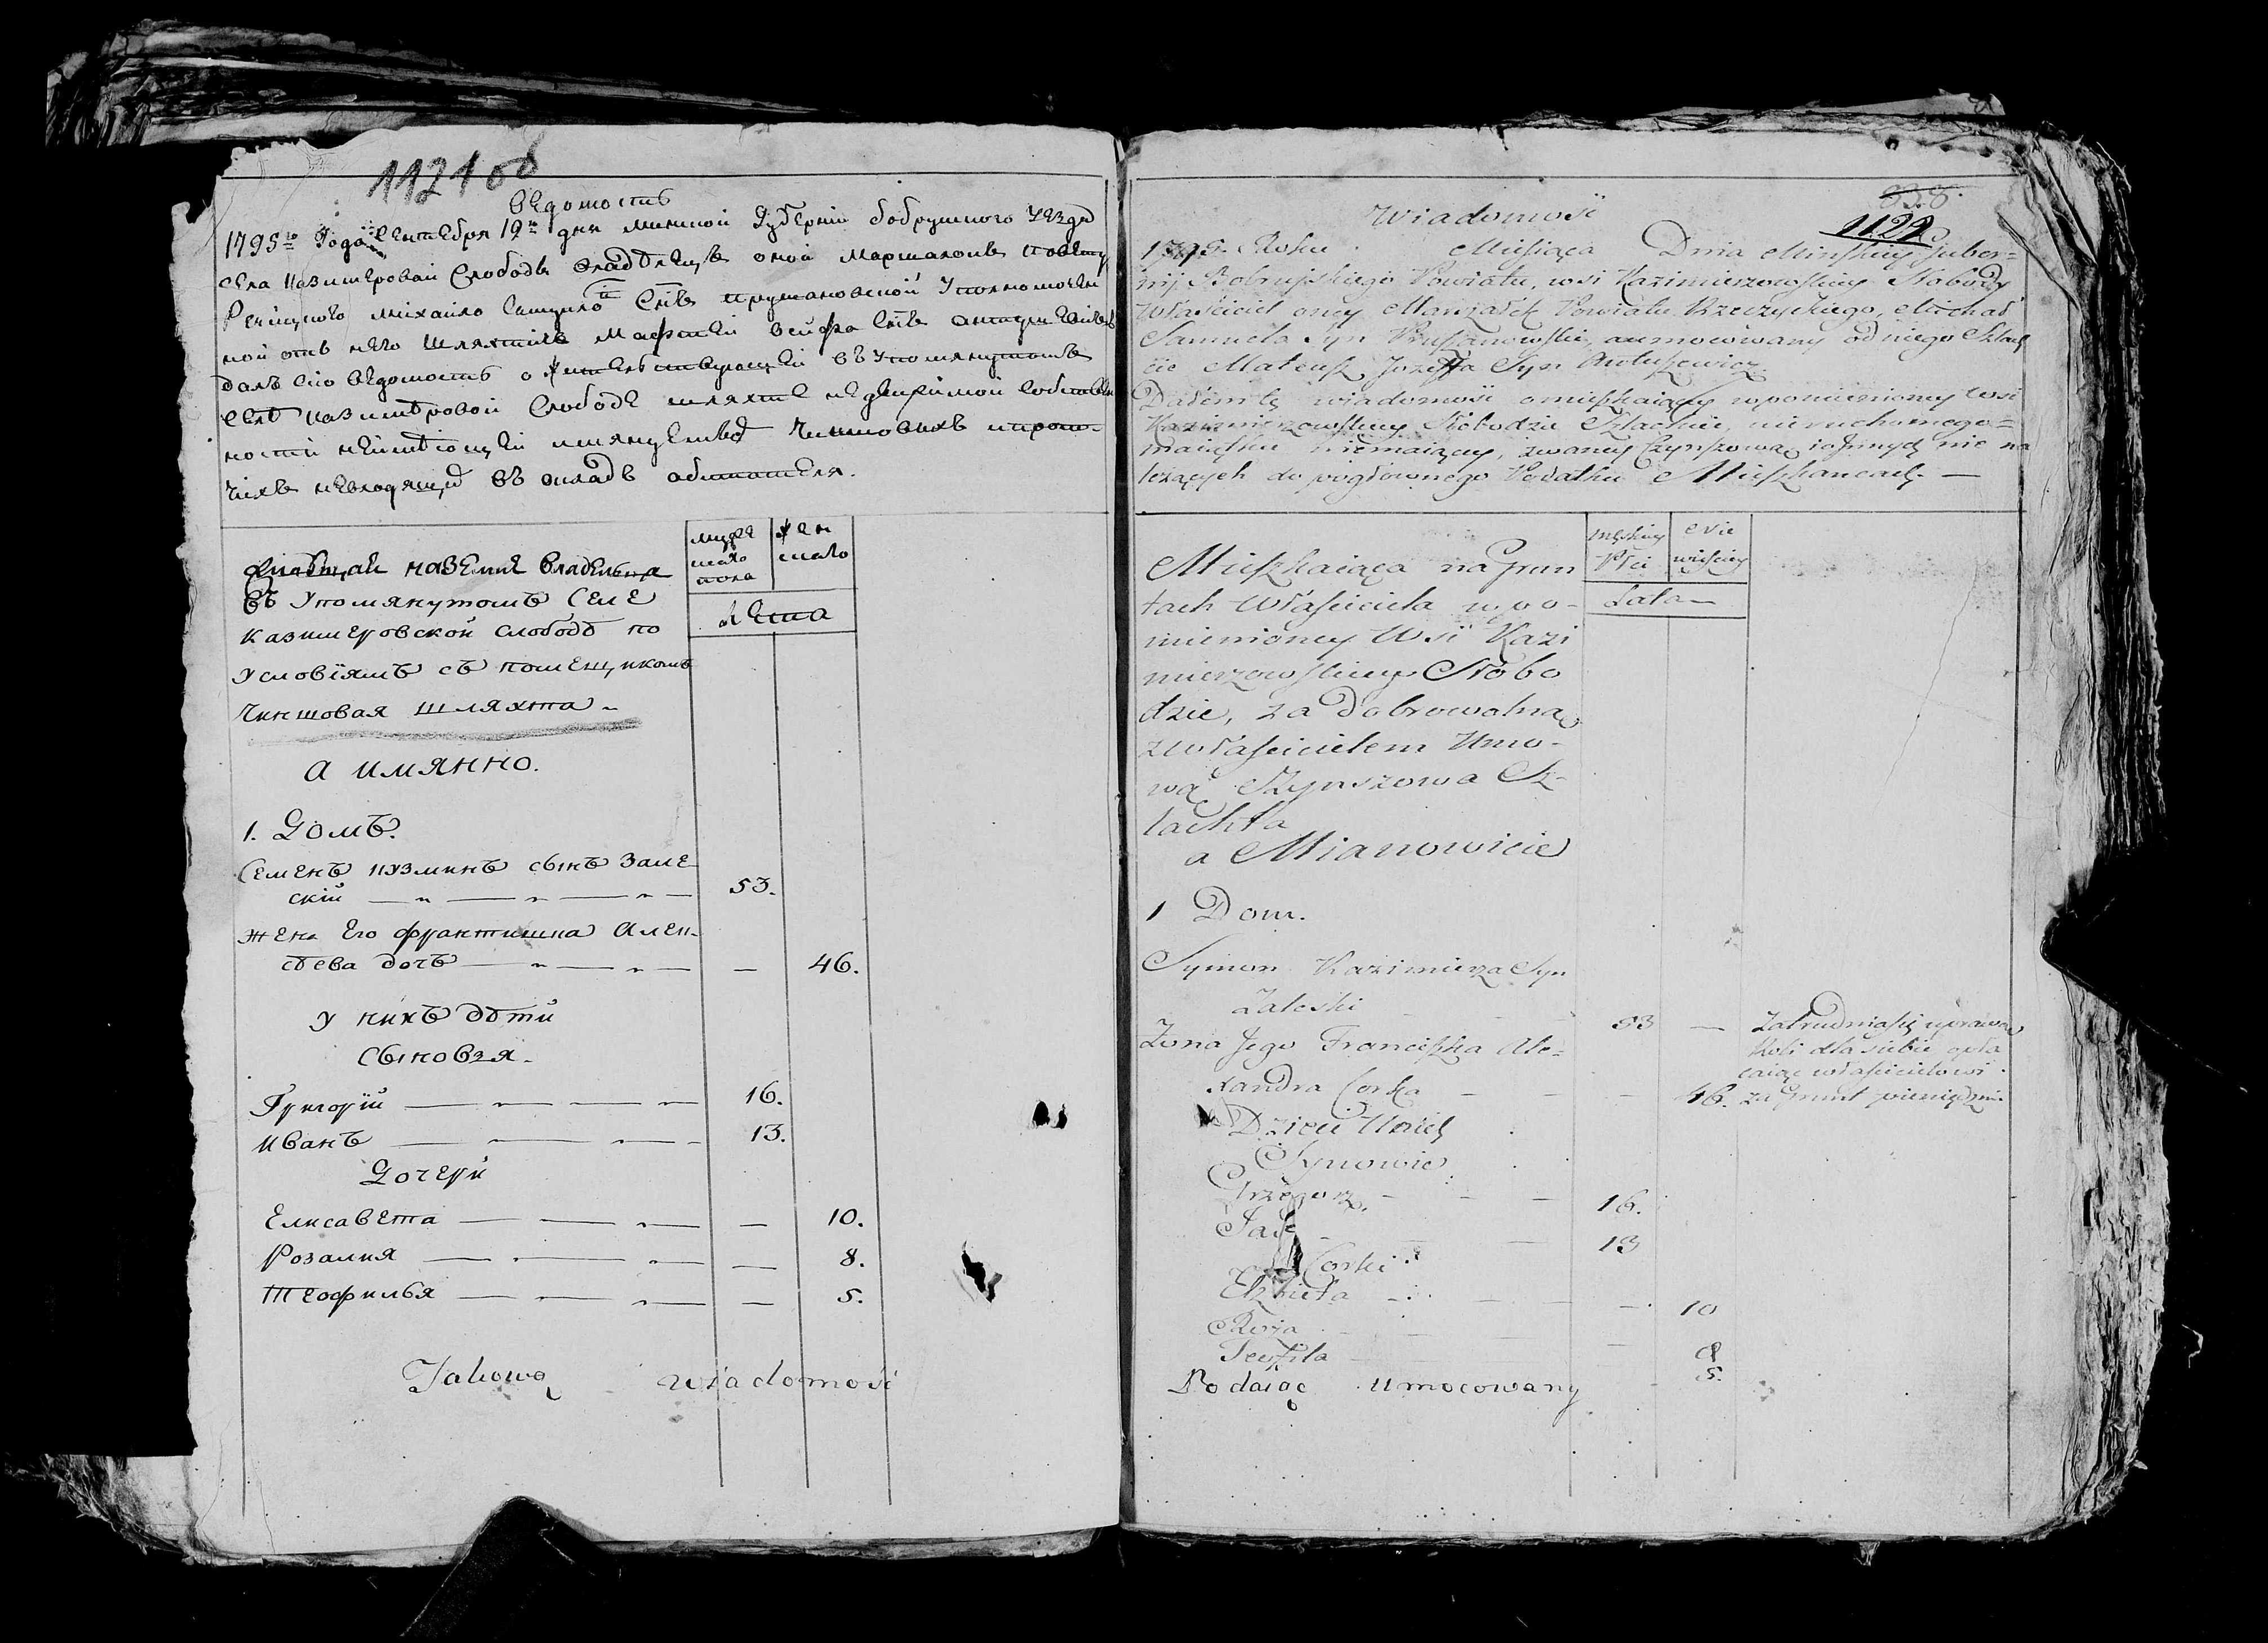 1121 об
Ведомость
1795го Года Сентября 12го дня Минской Губернии бобруцкого уезда
села казимеровой Слободы владелецъ оной Маршалокъ повету
Речицкого Михайло Самуило Снъ прушановской Уполномочен
ной отъ него шляхтичъ Матфей осифа Снъ
далъ сию ведомость о жительствующей въ упомянутомъ
селе казимеровой Слободе шляхте недвижимой собствен
ности неимеющей имянуемыхъ чиншовыхъ и проч-
чихъ невходящихъ въ окладъ обитателя.
живущая на земле владельца
въ Упомянутомъ Селе
казимеровской слободѣ по
Условїямъ съ помещикомъ
чиншовая шляхта
а имянно.
мужеска пола
женска
лета
1. Домъ.
Семенъ кузминъ сынъ Залеский
53.
жена Его франтишка Алексѣева дочь
46.
у нихъ дѣти
сыновя
Григорїй 16.
иванъ 13.
Дочери
Елисавета 10.
Розалия 8.
Теофилья 5.
Takową wiadomość
1122
Wiadomość
1795 Roku Miesiąca Dnia Minskiey Guber=
nij Bobruyskiego Powiatu, wsi Kazimierzowskiey Słobody
Właściciel oney Marszałek Powiatu Rzeczyckiego, Michał
Samuela Syn Prusanowski, aumocowany od niego Szlach
cic Mateusz Jozeffa Syn
Dałem tę wiadomość omieszkaiącey wpomienioney wsi
Kazimierzowskiey Słobodzie Szlachcie, nieruchomego=
maiątku niemaiącey, zwaney Czynszową i innych nie na
leżących do pogłownego Podatku Mieszkancach. —
Mieszkaiąca na grun
tach Właściciela wpo-
mienioney Wsi Kazi
mierzowskiey Słobo
dzie, za Dobrowolną
z Właścicielem Umo-
wą Czynszowa Sz-
lachta
a Mianowicie
męskiey Płci
Niewieściey
Lata
1 Dom.
Symon Kazimierza Syn
Zaleski 53 — Zatrudnia się uprawą
Roli dla siebie opła
caiąc właścicielowi
za grunt pieniędzmi
Żona Jego Franciszka Ale=
xandra Corka 46.
Dzieci Unich
Synowie
Grzegorz 16.
Jan 13
Corki
Elżbieta 10
Roża 8
Teofila 5.
Podaiąc umocowany